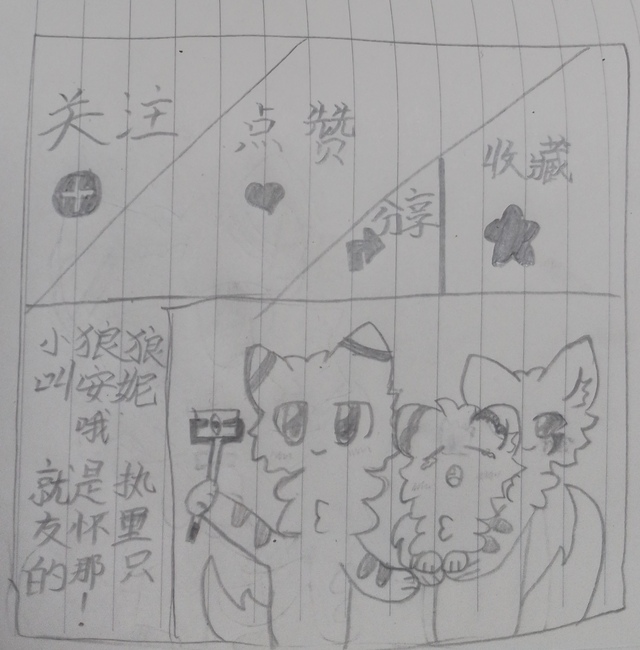 关注
点赞
分享
收藏
小狼狼
叫安妮
哦
就是执
友怀里
的那只
！